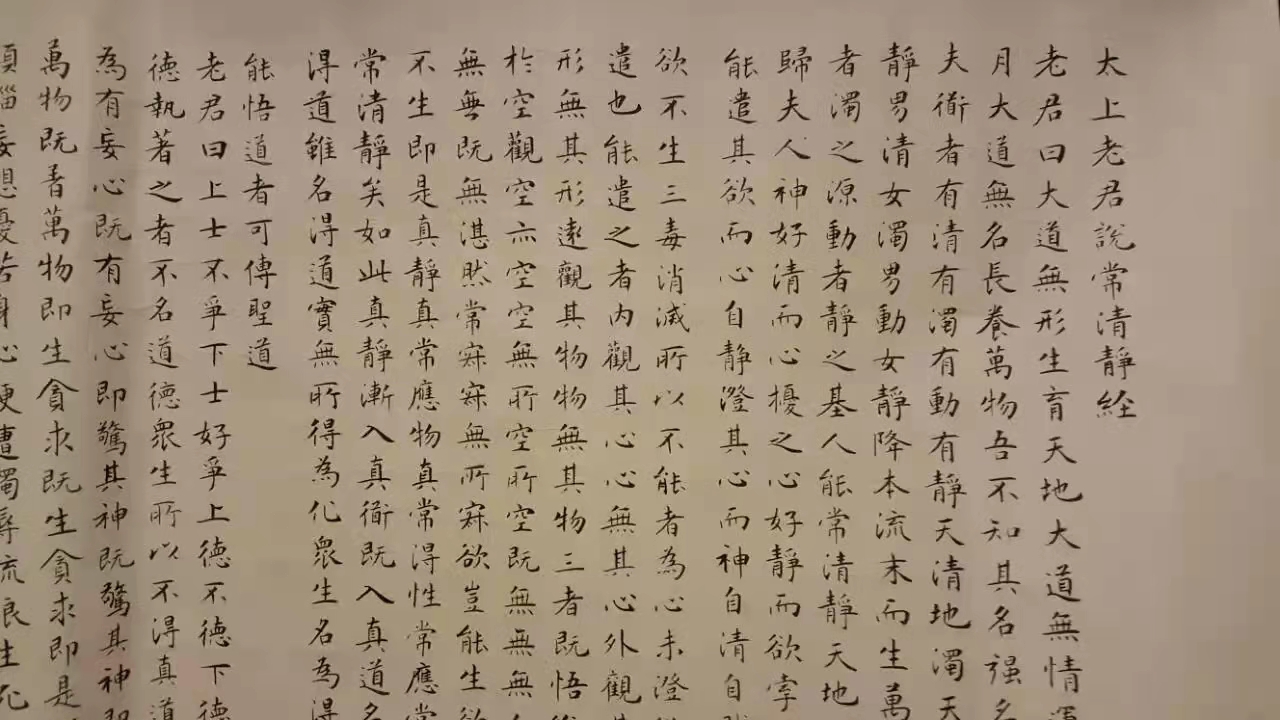 太上老君說常清靜経
老君曰大道無形生育天地大道無情運
月大道無名長養萬物吾不知其名强名
夫衜者有清有濁有動有靜天清地濁天
靜男清女濁男動女靜降本流末而生萬
者濁之源動者靜之基人能常清靜天地
歸夫人神好清而心擾之心好靜而欲牽
能遣其欲而心自靜澄其心而神自清自
欲不生三毒消滅所以不能者為心未澄
遣也能遣之者內觀其心心無其心外觀
形無其形遠觀其物物無其物三者既悟
於空觀空亦空空無所空所空既無無無
無無既無湛然常寂寂無所寂欲豈能生
不生即是真靜真常應物真常得性常應
常清靜矣如此真靜漸入真衜既入真道名
得道雖名得道實無所得為化眾生名為得
能悟道者可傳聖道
老君曰上士不爭下士好爭上德不德下德
德執著之者不名道德眾生所以不得真道
為有妄心既有妄心即驚其神既驚其神即
萬物既着萬物即生貪求既生貪求即是
煩惱妄想憂苦身心便遭濁辱流浪生死